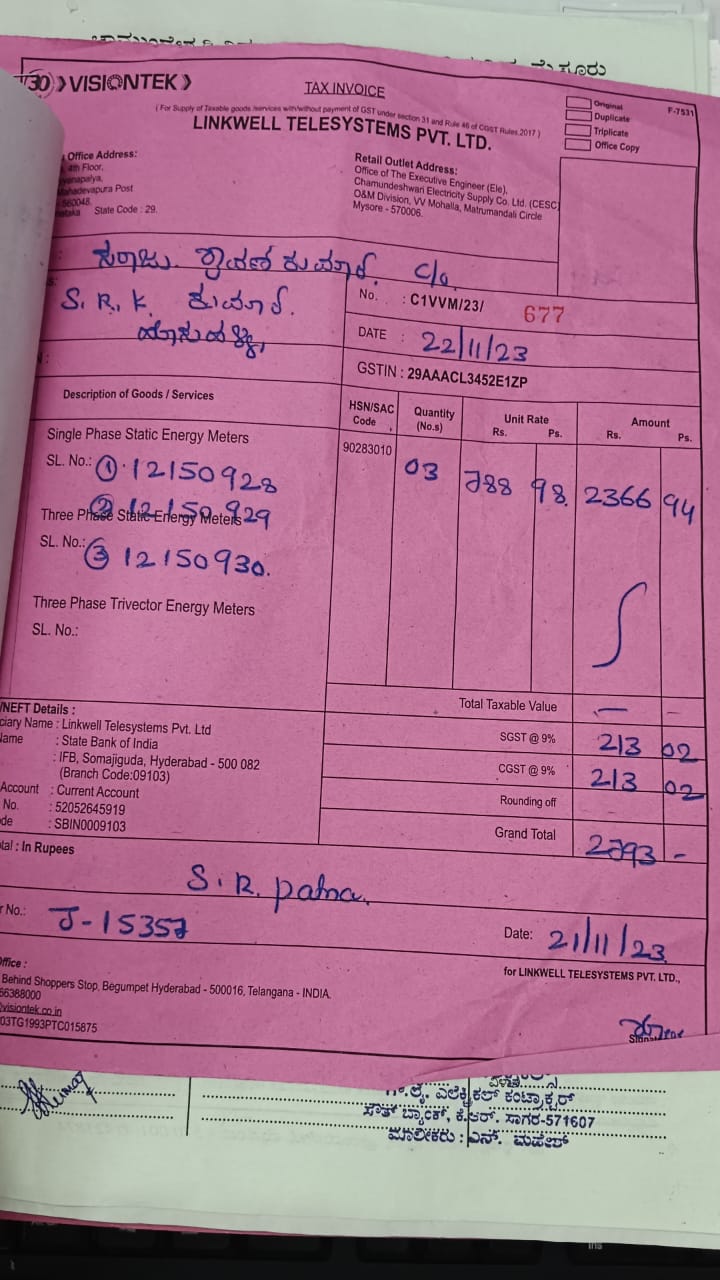 30 VISIONTEK
TAX INVOICE
( For Supply of Taxable goods /services with/without payment of GST under section 31 and Rule 46 of CGST Rules 2017 )
LINKWELL TELESYSTEMS PVT. LTD.
Original
Duplicate
Triplicate
Office Copy
F-7531
Office Address:
4th Floor,
Mahadevapura Post
560048.
State Code : 29.
Retail Outlet Address:
Office of The Executive Engineer (Ele),
Chamundeshwari Electricity Supply Co. Ltd. (CESC)
O&M Division, VV Mohalla, Matrumandali Circle
Mysore - 570006.
ಕುಮಾರ್. C/o
S. R. K. ಕುಮಾರ್.
No. : C1VVM/23/ 677
DATE : 22/11/23
GSTIN : 29AAACL3452E1ZP
Description of Goods / Services
HSN/SAC Code
Quantity (No.s)
Unit Rate Rs. Ps.
Amount Rs. Ps.
Single Phase Static Energy Meters
90283010 03 788 98. 2366 94
SL. No.: ① 12150928
② 12150929
Three Phase Static Energy Meters
SL. No.: ③ 12150930.
Three Phase Trivector Energy Meters
SL. No.:
Total Taxable Value — —
SGST @ 9% 213 02
CGST @ 9% 213 02
Rounding off
Grand Total 2793 -
/NEFT Details :
ciary Name : Linkwell Telesystems Pvt. Ltd
Name : State Bank of India
: IFB, Somajiguda, Hyderabad - 500 082
(Branch Code:09103)
Account : Current Account
No. : 52052645919
de : SBIN0009103
tal : In Rupees
S. R. patna.
r No.: J-15357
Date: 21/11/23.
for LINKWELL TELESYSTEMS PVT. LTD.,
Office :
Behind Shoppers Stop, Begumpet Hyderabad - 500016, Telangana - INDIA.
66388000
visiontek.co.in
03TG1993PTC015875
ಎಲೆಕ್ಟ್ರಿಕಲ್ ಕಂಟ್ರಾಕ್ಟರ್
ಸೌತ್ ಬ್ಯಾಂಕ್, ಕೆ.ಆರ್. ಸಾಗರ-571607
ಮಾಲೀಕರು : ಎನ್. ಮಹೇಶ್